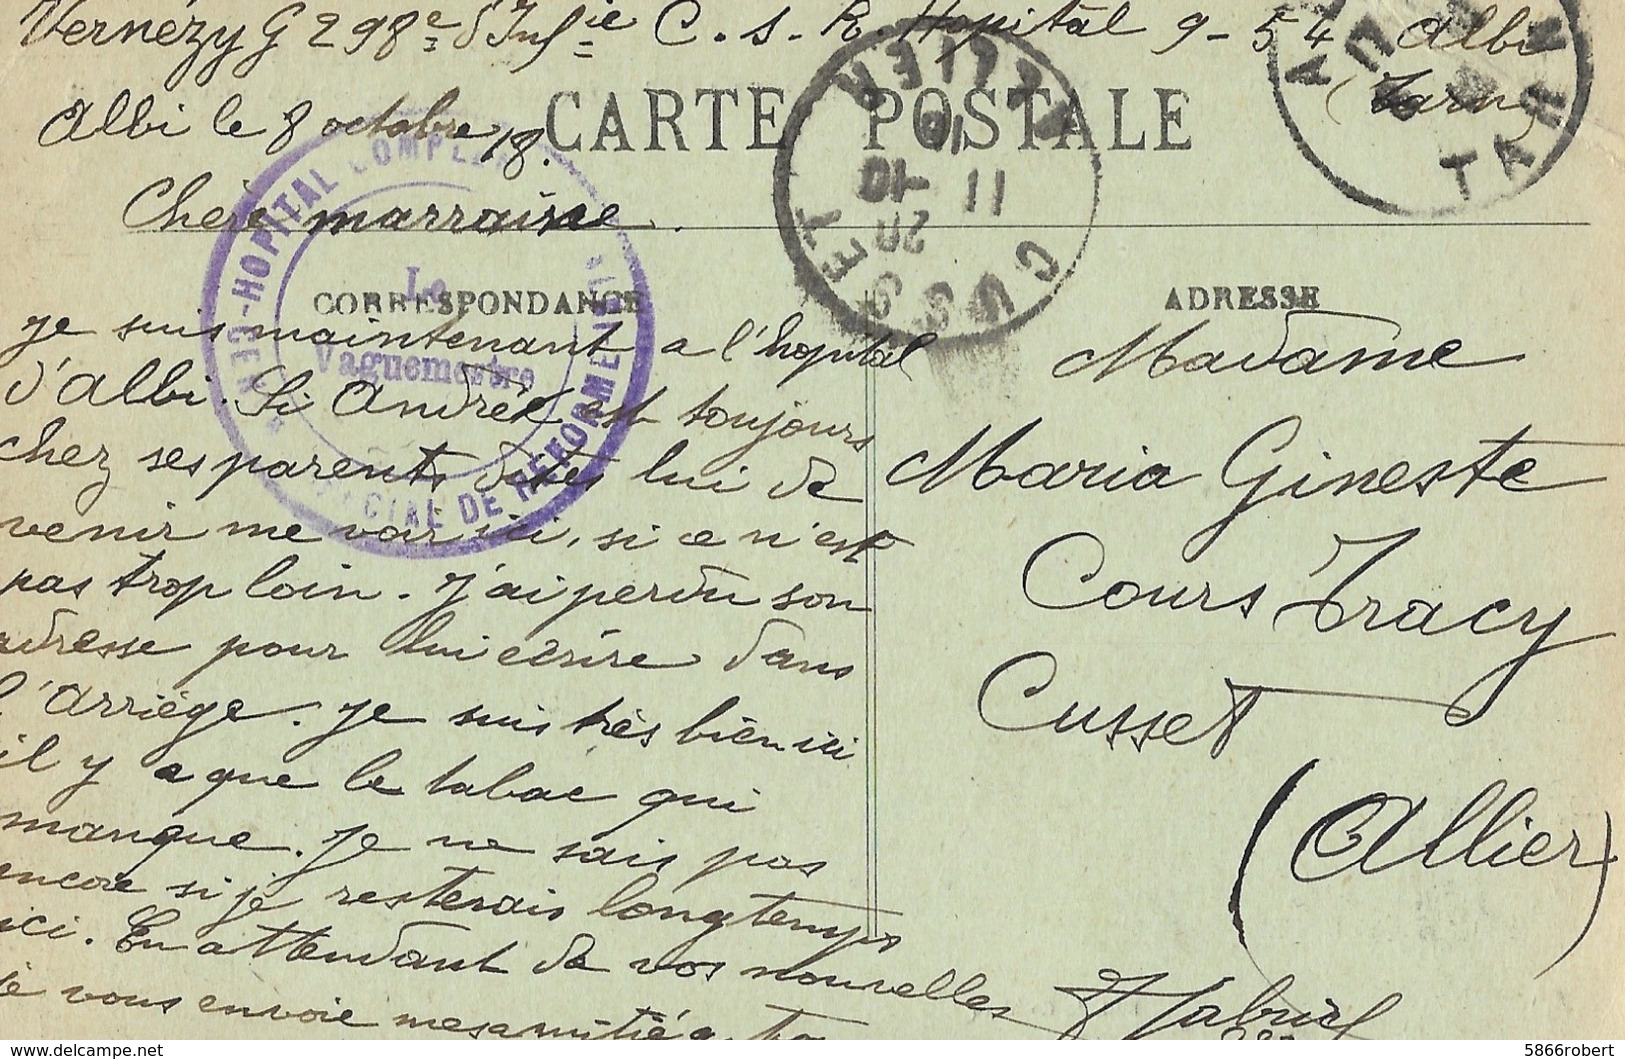 Vernézy G 298e d'Infie C.S.R. Hopital 9-54 Albi
(Tarn)
Albi le 8 octobre 18.
CARTE POSTALE
Chère marraine.
CORRESPONDANCE
ADRESSE
HOPITAL COMPLEM
SPECIAL DE REFORME
Le
Vaguemestre
CUSSET
ALLIER
20
11 -10
18
TARN
je suis maintenant a l'hopital
d'Albi. Si Andrée est toujours
chez ses parents dites lui de
venir me voir ici, si ce n'est
pas trop loin. J'ai perdu son
adresse pour lui écrire dans
l'Arriège. Je suis très bien ici
il y a que le tabac qui
manque. Je ne sais pas
encore si je resterais longtemps
ici. En attendant de vos nouvelles
je vous envoie mes amitiés
Madame
Maria Gineste
Cours Tracy
Cusset
(Allier)
5866robert